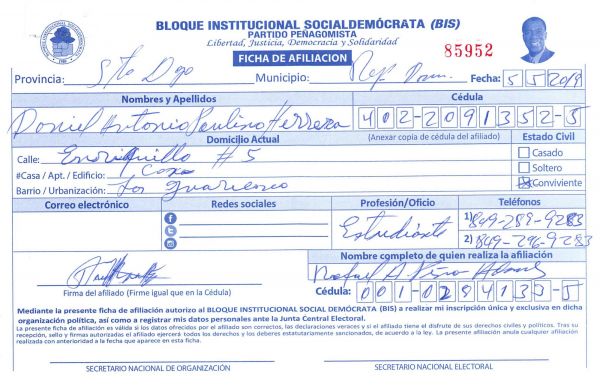 BLOQUE INSTITUCIONAL SOCIALDEMÓCRATA (BIS)
PARTIDO PEÑAGOMISTA
Libertad, Justicia, Democracia y Solidaridad
FICHA DE AFILIACION
85952
Provincia: Sto Dgo Municipio: Rep Dom. Fecha: 5 5 2019
Nombres y Apellidos Cédula
Daniel Antonio Paulino Herrera 402-2091352-5
Domicilio Actual (Anexar copia de cédula del afiliado) Estado Civil
Calle: Enriquillo # 5 Casado
#Casa / Apt. / Edificio: Casa Soltero
Barrio / Urbanización: Los Conviviente
Correo electrónico Redes sociales Profesión/Oficio Teléfonos
Estudiante 1) 849-289-9283
2) 849-296-9283
Nombre completo de quien realiza la afiliación
Rafael A
Firma del afiliado (Firme igual que en la Cédula) Cédula: 001-0284133-5
Mediante la presente ficha de afiliación autorizo al BLOQUE INSTITUCIONAL SOCIAL DEMÓCRATA (BIS) a realizar mi inscripción única y exclusiva en dicha
organización política, así como a registrar mis datos personales ante la Junta Central Electoral.
La presente ficha de afiliación es válida si los datos ofrecidos por el afiliado son correctos, las declaraciones veraces y si el afiliado tiene el disfrute de sus derechos civiles y políticos. Tras su
recepción, sello y firmas autorizadas el afiliado ejercerá todos los derechos y los deberes estatutariamente sancionados, de acuerdo a la ley. La presente afiliación anula cualquier afiliación
realizada con anterioridad a la fecha que aparece en esta ficha.
SECRETARIO NACIONAL DE ORGANIZACIÓN SECRETARIO NACIONAL ELECTORAL